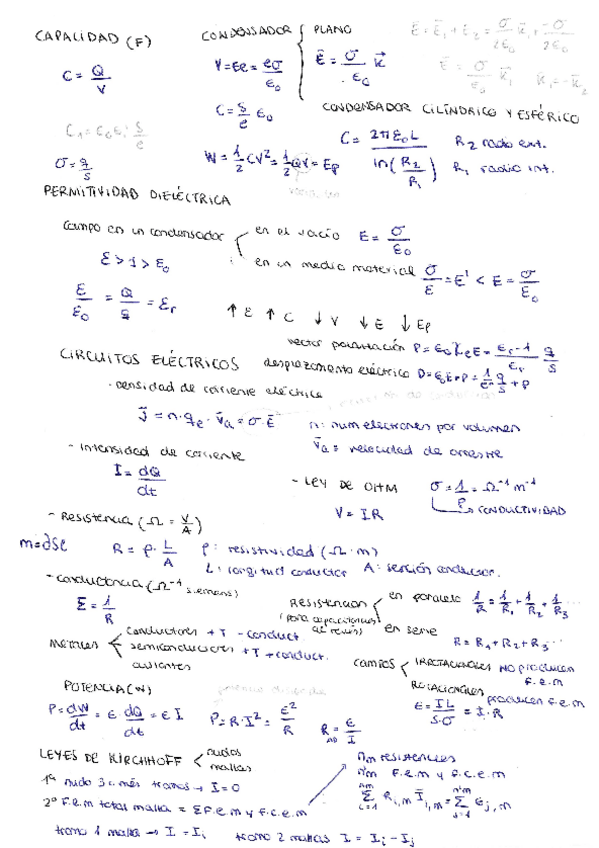 CAPACIDAD (F)
C = Q/V
σ = q/S
CONDENSADOR { PLANO
V = Ee = eσ/ε₀
E⃗ = σ/ε₀ k⃗
C = S/e ε₀
W = 1/2 CV² = 1/2 QV = Ep
CONDENSADOR CILÍNDRICO Y ESFÉRICO
C = 2πε₀L / ln(R₂/R₁)
R₂ radio ext.
R₁ radio int.
PERMITIVIDAD DIELÉCTRICA
Campo en un condensador
en el vacío E = σ/ε₀
en un medio material σ/ε = E' < E = σ/ε₀
ε > 1 > ε₀
ε/ε₀ = Q/q = εr
↑ε ↑C ↓V ↓E ↓Ep
vector polarización P = ε₀χeE = εr-1/εr q/S
CIRCUITOS ELÉCTRICOS
desplazamiento eléctrico D = ε₀E+P = 1/εr q/S + P
· densidad de corriente eléctrica
J⃗ = n·qe·v⃗a = σ·E⃗
n: num electrones por volumen
v⃗a = velocidad de arrastre
- intensidad de corriente
I = dQ/dt
- LEY DE OHM
V = IR
σ = 1/ρ = Ω⁻¹ m⁻¹
CONDUCTIVIDAD
- Resistencia (Ω = V/A)
m = dSL
R = ρ · L/A
ρ: resistividad (Ω·m)
L: longitud conductor A: sección conductor.
- conductancia (Ω⁻¹ siemens)
Σ = 1/R
RESISTENCIAS
(para capacitancias al revés)
en paralelo 1/R = 1/R₁ + 1/R₂ + 1/R₃ ...
en serie R = R₁+R₂+R₃ ...
METALES
conductores +T - conduct
semiconductores +T + conduct.
aislantes
CAMPOS
IRROTACIONALES NO producen f.e.m
ROTACIONALES producen f.e.m
ε = IL/S·σ = I·R
POTENCIA (W)
P = dW/dt = ε dQ/dt = ε I
P = R·I² = ε²/R
R = ε/I
LEYES DE KIRCHHOFF
nudos
mallas
1ª nudo 3 ó más tramos → I = 0
2ª F.e.m total malla = Σ F.e.m y f.c.e.m
nm resistencias
n'm F.e.m y f.c.e.m
Σ Ri,m Ii,m = Σ εj,m
tramo 1 malla → I = Ii
tramo 2 mallas I = Ii - Ij